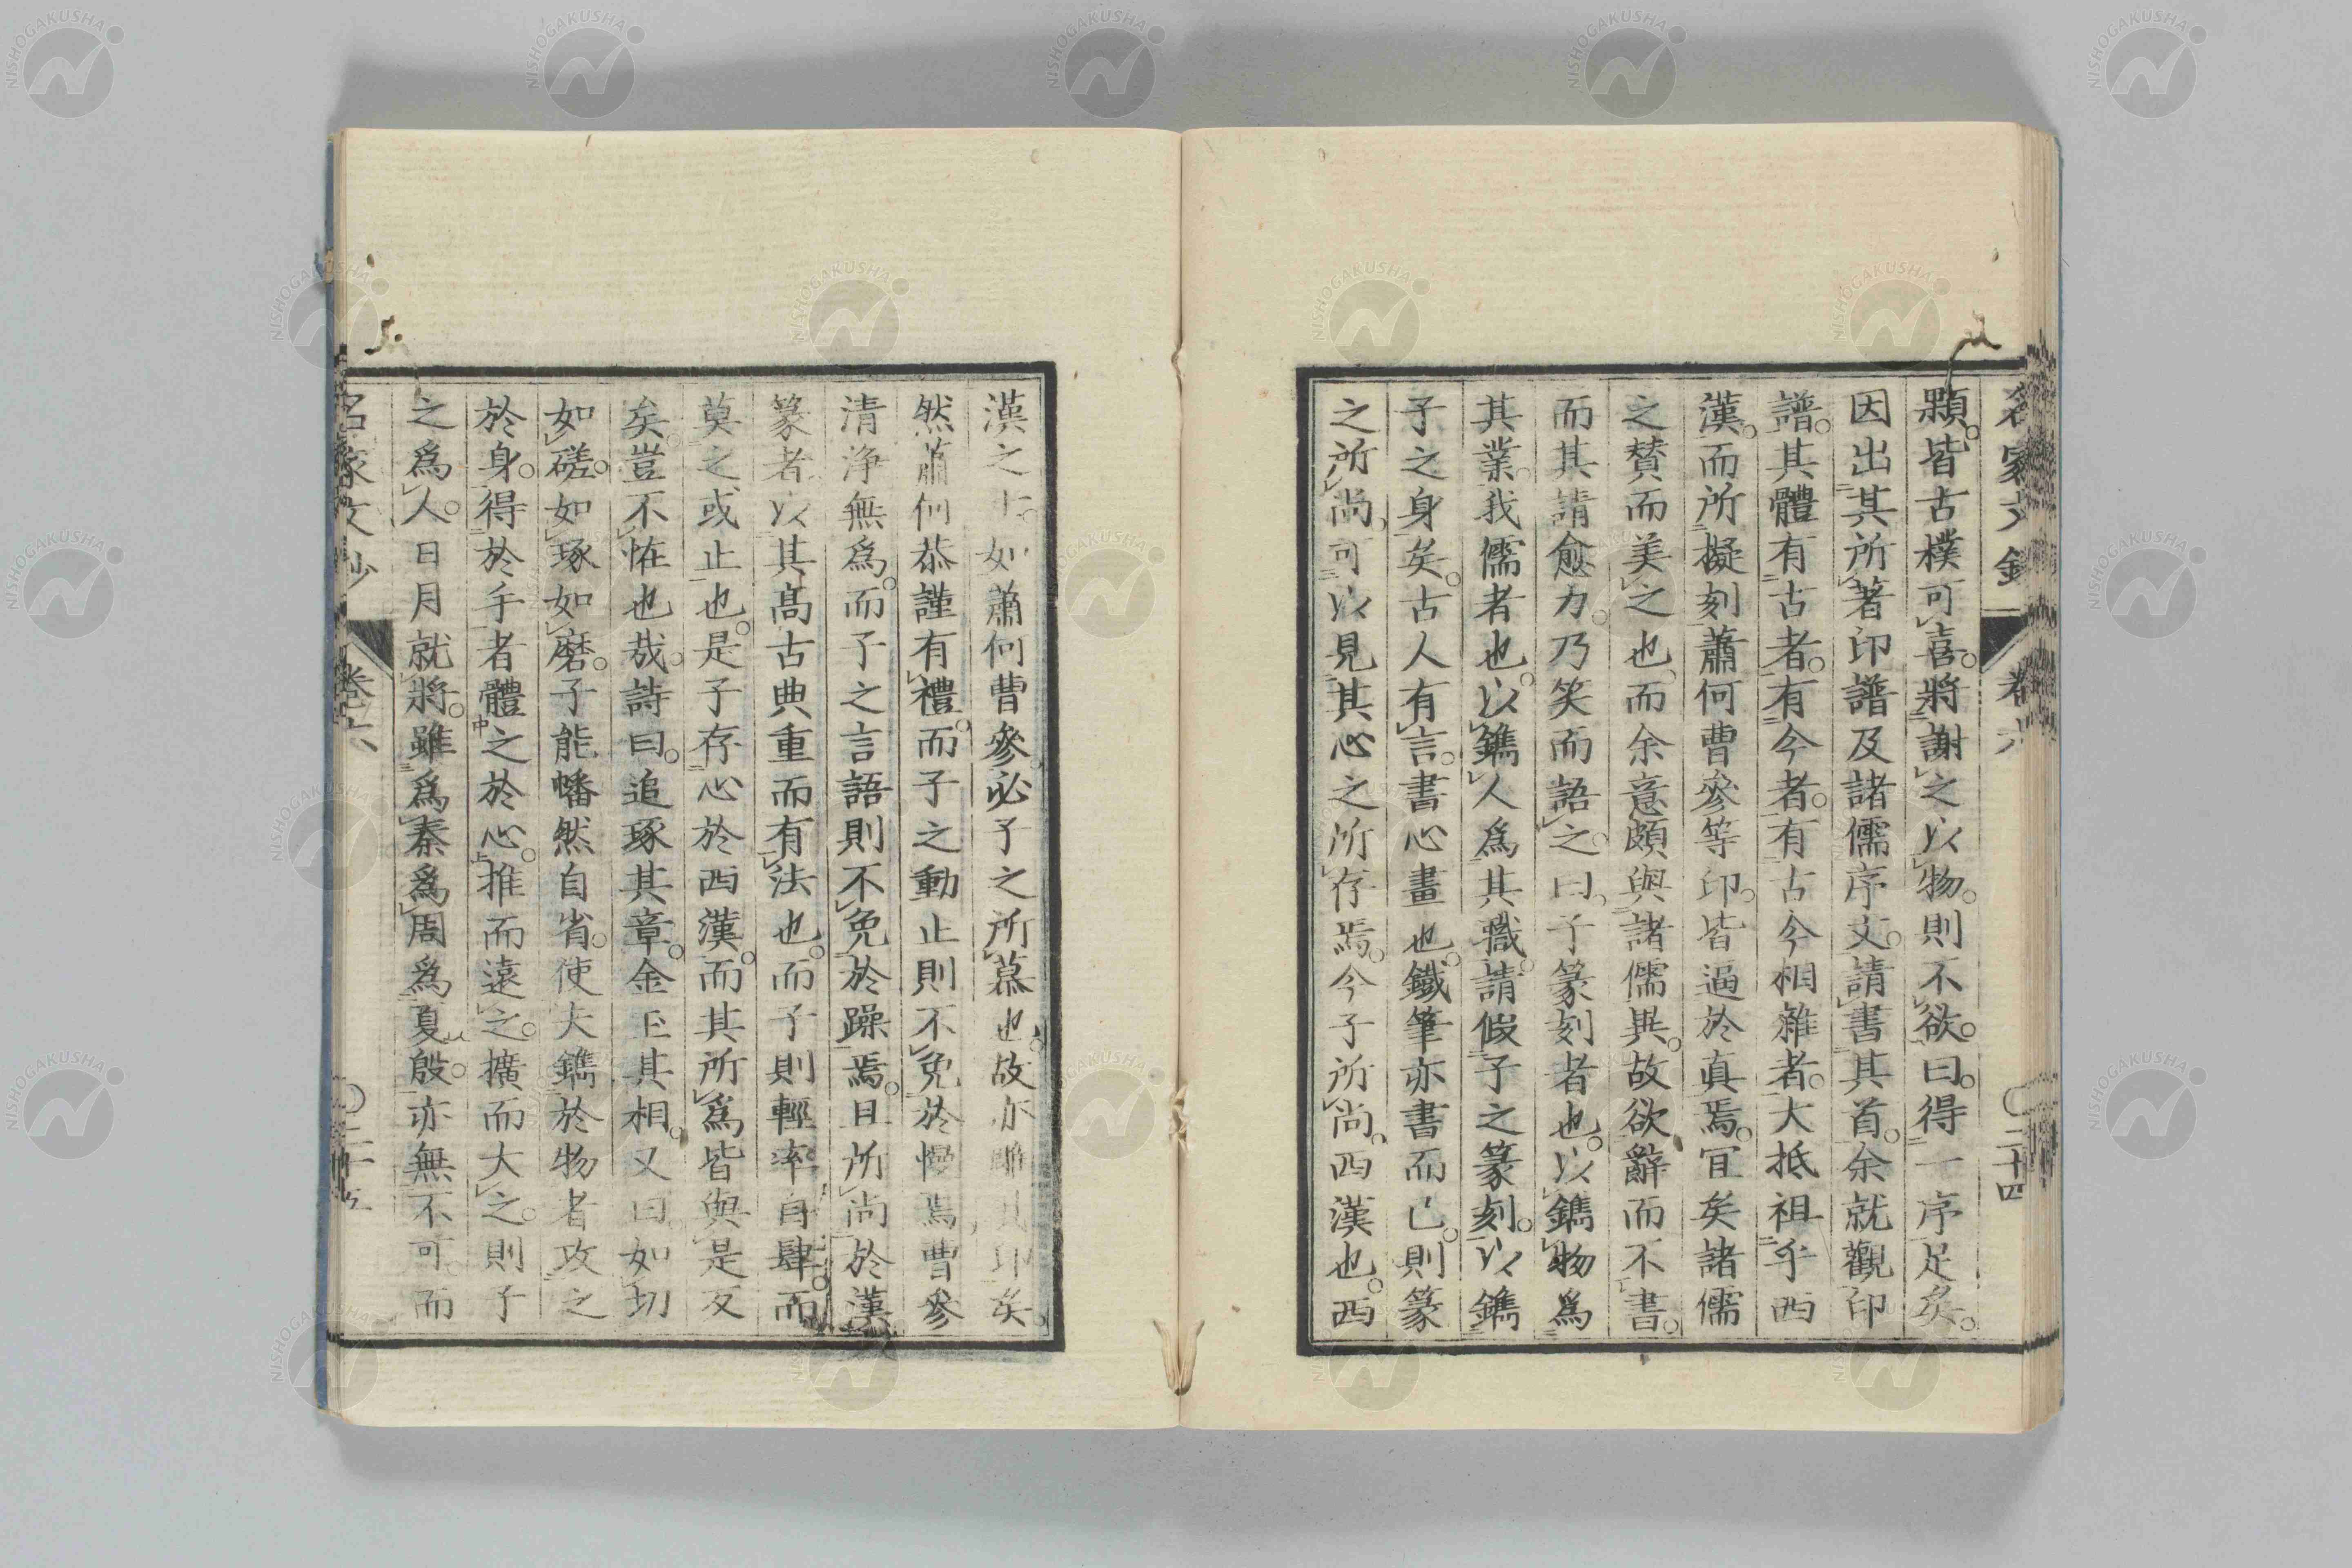 名家文鈔 卷六 〇二十四
顆。皆古樸可喜。將謝之以物。則不欲。曰。得一序足矣。
因出其所著印譜及諸儒序文。請書其首。余就觀印
譜。其體有古者。有今者。有古今相雜者。大抵祖乎西
漢。而所擬刻蕭何曹參等印。皆逼於真焉。宜矣諸儒
之賛而美之也。而余意頗與諸儒異。故欲辭而不書。
而其請愈力。乃笑而語之。曰。子篆刻者也。以鐫物爲
其業。我儒者也。以鐫人爲其職。請假子之篆刻。以鐫
子之身矣。古人有言。書心畫也。鐵筆亦書而已。則篆
之所尚。可以見其心之所存焉。今子所尚。西漢也。西
漢之士。如蕭何曹參。必子之所慕也。故亦雕其印矣。
然蕭何恭謹有禮。而子之動止則不免於慢焉。曹參
清淨無爲。而子之言語則不免於躁焉。且所尚於漢
篆者。以其高古典重而有法也。而子則輕率自肆。而
莫之或止也。是子存心於西漢。而其所爲皆與是反
矣。豈不恠也哉。詩曰。追琢其章。金玉其相。又曰。如切
如磋。如琢如磨。子能幡然自省。使夫鐫於物者攻之
於身。得於手者體之於心。推而遠之。擴而大之。則子
之爲人。日月就將。雖爲秦爲周爲夏殷。亦無不可。而
名家文鈔 卷六 〇二十五
NISHOGAKUSHA